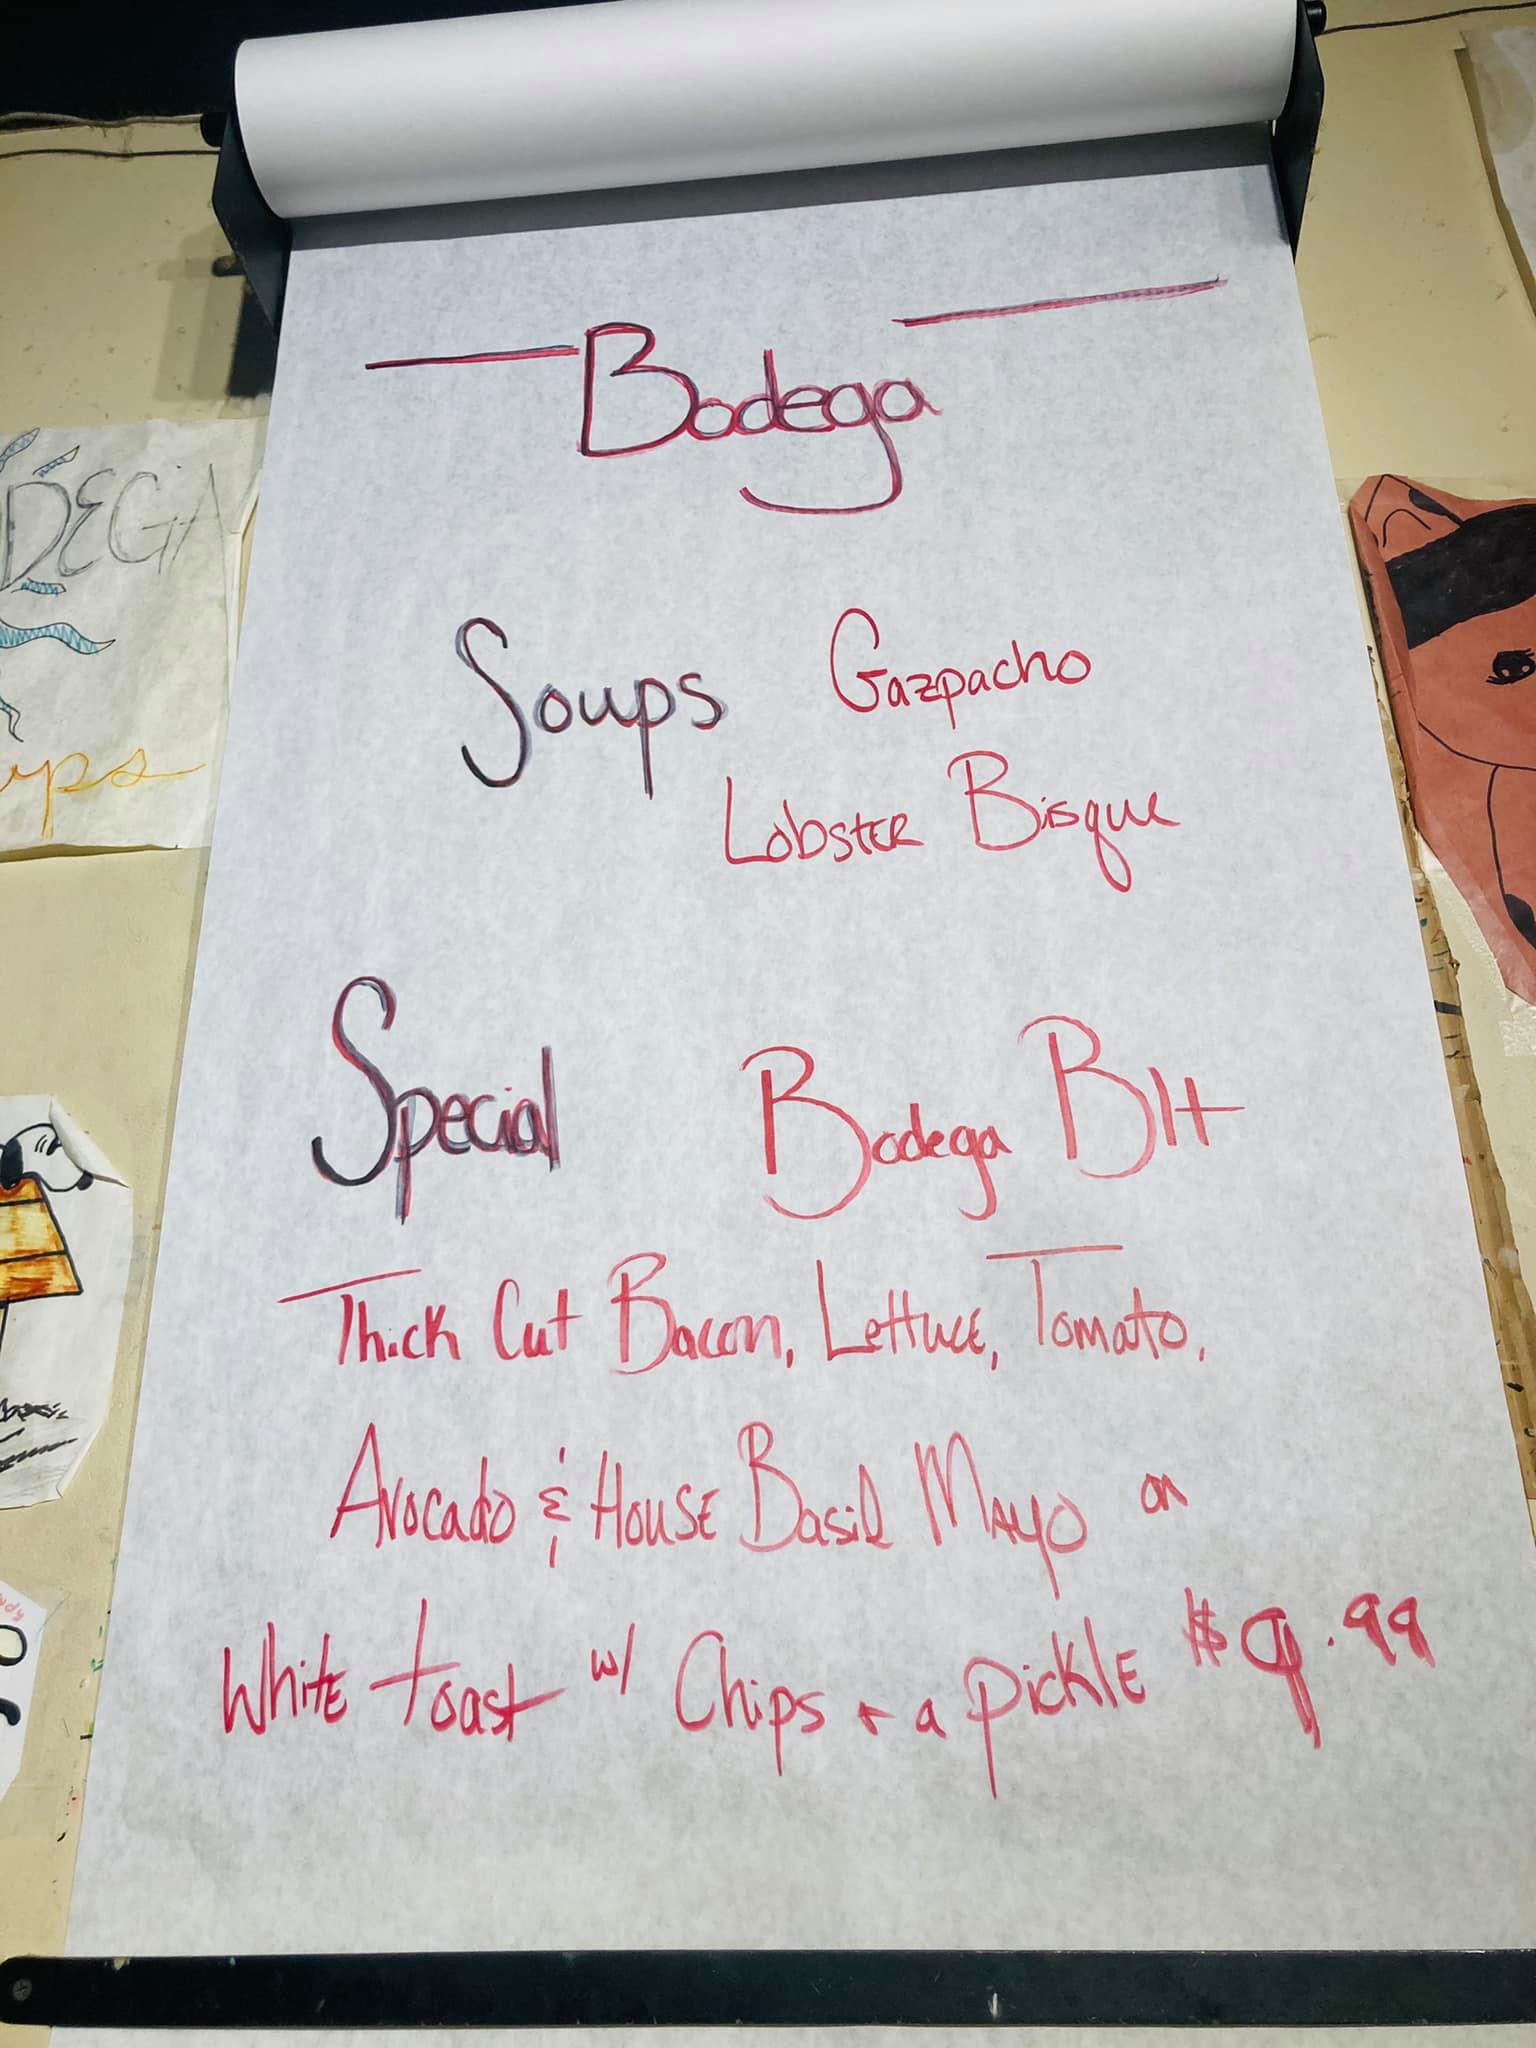 Bodega
Soups Gazpacho
Lobster Bisque
Special Bodega Blt
Thick Cut Bacon, Lettuce, Tomato,
Avocado & House Basil Mayo on
White toast w/ Chips + a pickle $9.99
DEGA
ups